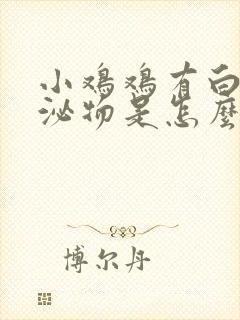 小鸡鸡有白
泌物是怎麽
博尔丹